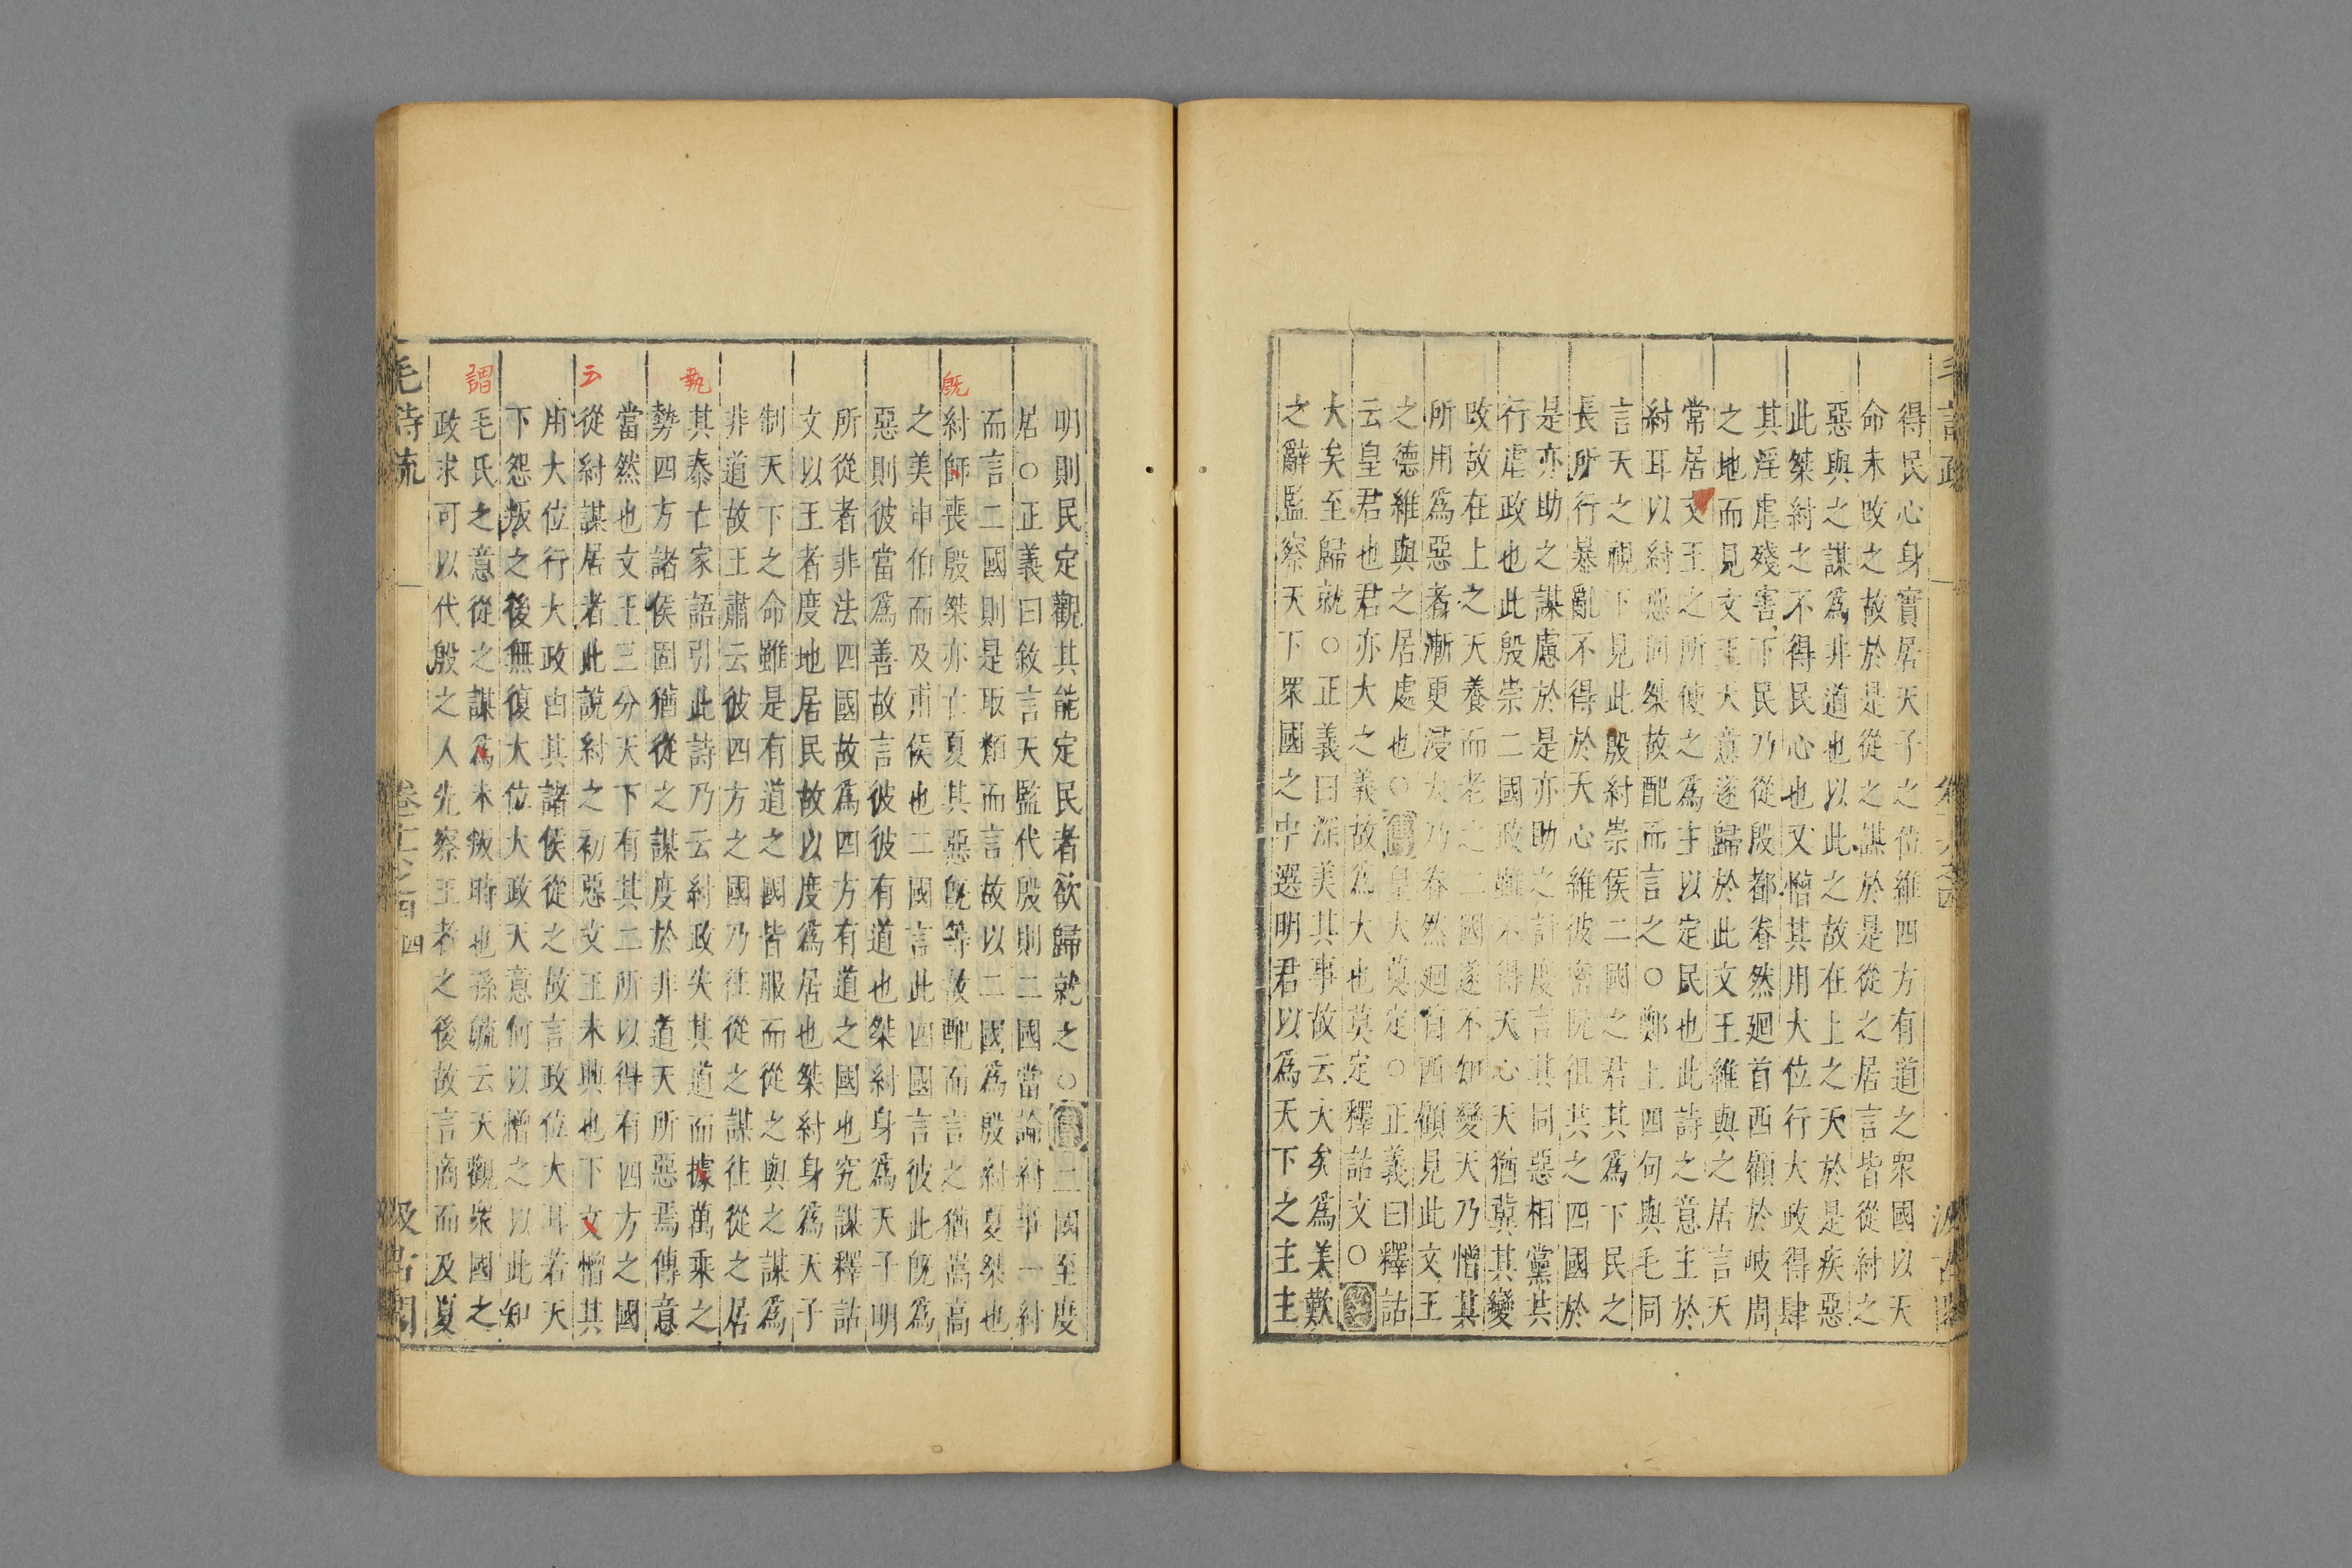 得民心身實居天子之位維四方有道之眾國以天
命未改之故於是從之謀於是從之居言皆從紂之
惡與之謀爲非道也以此之故在上之天於是疾惡
此桀紂之不得民心也又憎其用大位行大政得肆
其淫虐殘害下民乃從殷都眷然廻首西顧於岐周
之地而見文王天意遂歸於此文王維與之居言天
常居文王之所使之爲主以定民也此詩之意主於
紂耳以紂惡同桀故配而言之○鄭上四句與毛同
言天之視下見此殷紂崇侯二國之君其爲下民之
長所行暴亂不得於天心維彼密阮徂共之四國於
是亦助之謀慮於是亦助之計度言其同惡相黨共
行虐政也此殷崇二國政雖不得天心天猶冀其變
改故在上之天養而老之二國遂不知變天乃憎其
所用爲惡者漸更浸大乃眷然廻首西顧見此文王
之德維與之居處也○傳皇大莫定○正義曰釋詁
云皇君也君亦大之義故爲大也莫定釋詁文○箋
大矣至歸就○正義曰深美其事故云大矣爲美歎
之辭監察天下眾國之中選明君以爲天下之主主
明則民定觀其能定民者欲歸就之○傳二國至度
居○正義曰敘言天監代殷則二國當論紂事一紂
而言二國則是取類而言故以二國爲殷紂夏桀也
紂師喪殷桀亦亡夏其惡旣等故配而言之猶嵩高
之美申伯而及甫侯也二國言此四國言彼此旣爲
惡則彼當爲善故言彼彼有道也桀紂身爲天子明
所從者非法四國故爲四方有道之國也究謀釋詁
文以王者度地居民故以度爲居也桀紂身爲天子
制天下之命雖是有道之國皆服而從之與之謀爲
非道故王肅云彼四方之國乃往從之謀往從之居
其泰亡家語引此詩乃云紂政失其道而據萬乘之
勢四方諸侯固猶從之謀度於非道天所惡焉傳意
當然也文王三分天下有其二所以得有四方之國
從紂謀居者此說紂之初惡文王未興也下文憎其
用大位行大政由其諸侯從之故言政位大耳若天
下怨叛之後無復大位大政天意何以憎之以此知
毛氏之意從之謀爲未叛時也孫毓云天觀眾國之
政求可以代殷之人先察王者之後故言商而及夏
毛詩疏 卷十六之四 四 汲古閣
旣
執
云
謂